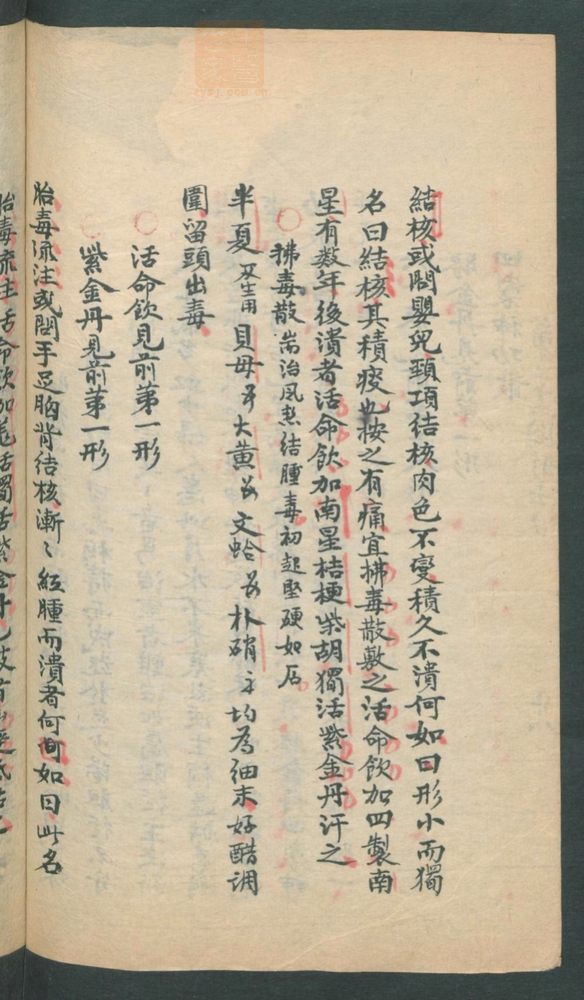 結核或問嬰児頸項結核肉色不变積久不潰何如曰形小而獨
名曰結核其積痰也按之有痛宜拂毒散敷之活命飲加四製南
星有数年後潰者活命飲加南星桔梗柴胡獨活紫金丹汗之
○拂毒散耑治風熱結腫毒初起堅硬如石
半夏 貝母 大黄 文蛤 朴硝 均為细末好醋調
圍留頭出毒
○活命飲見前第一形
○紫金丹見前第一形
胎毒流注或問手足胸背结核漸〻紅腫而潰者何如曰此名
胎毒流注活命飲加羌活獨活紫金丹